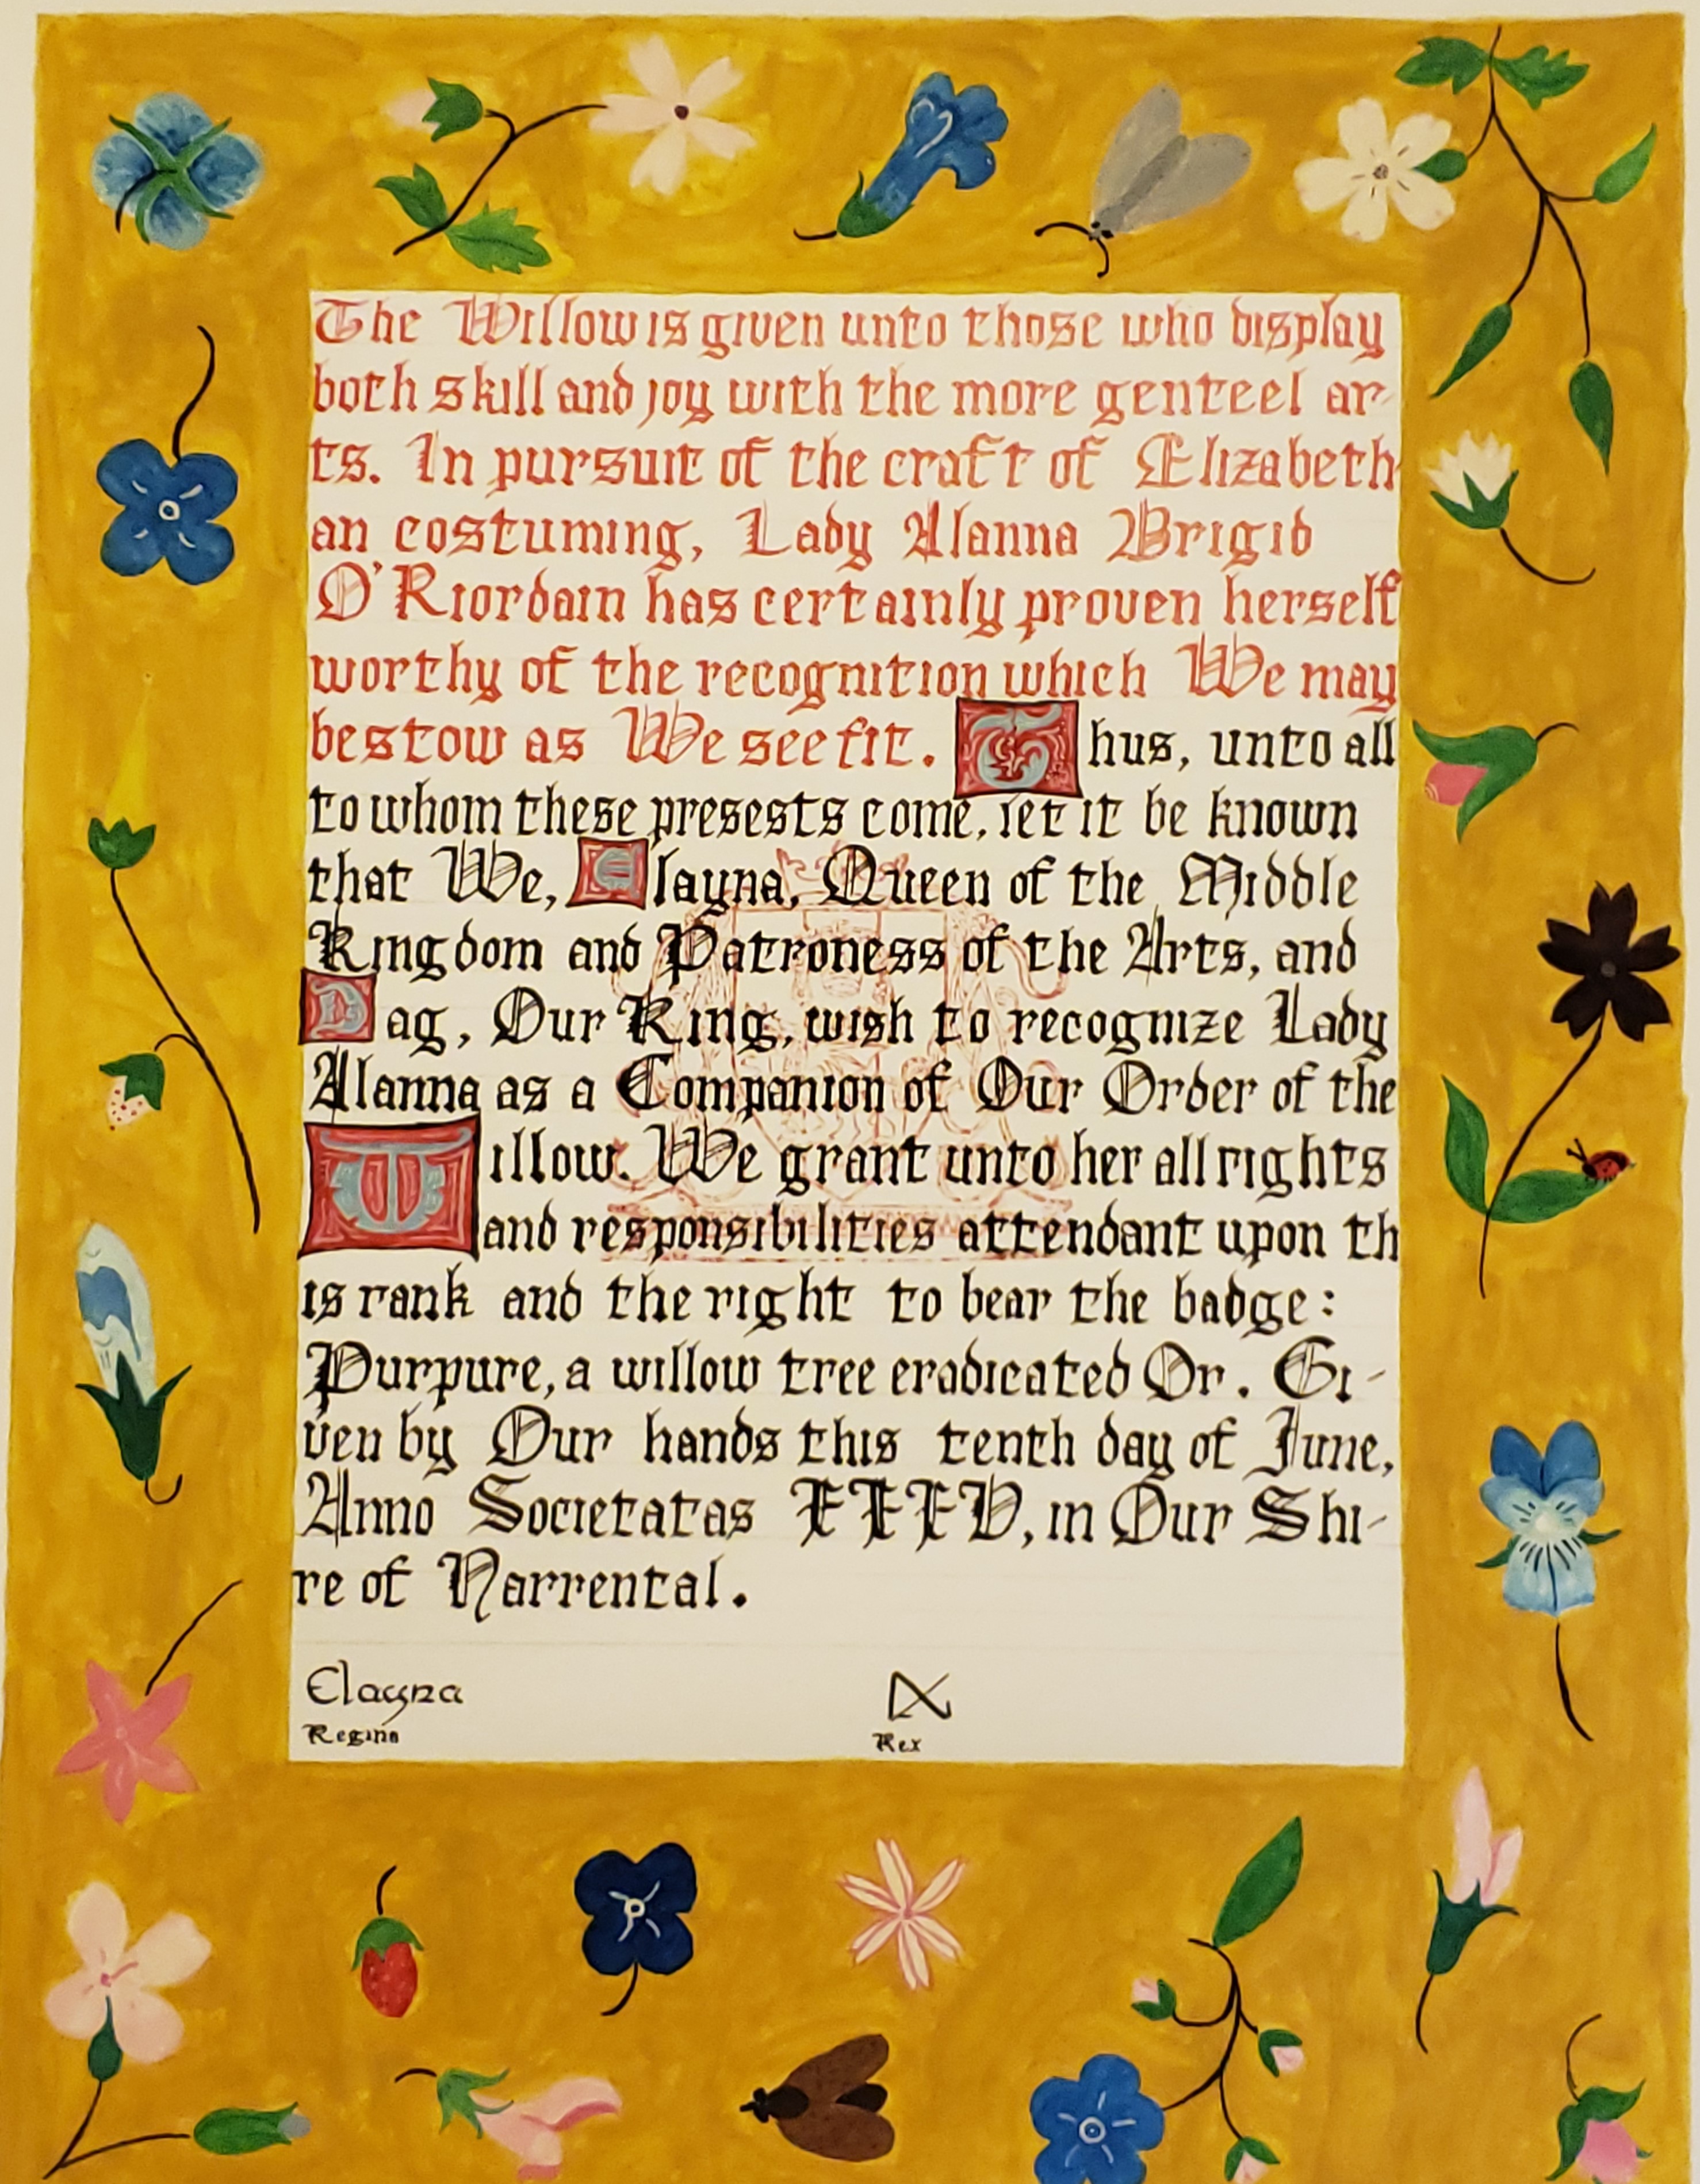 The Willow is given unto those who display
both skill and joy with the more genteel ar-
ts. In pursuit of the craft of Elizabeth-
an costuming, Lady Alanna Brigid
O'Riordain has certainly proven herself
worthy of the recognition which We may
bestow as We see fit. Thus, unto all
to whom these presests come, let it be known
that We, Elayna, Queen of the Middle
Kingdom and Patroness of the Arts, and
Dag, Our King, wish to recognize Lady
Alanna as a Companion of Our Order of the
Willow. We grant unto her all rights
and responsibilities attendant upon th
is rank and the right to bear the badge:
Purpure, a willow tree eradicated Or. Gi-
ven by Our hands this tenth day of June,
Anno Societatas XXXV, in Our Shi-
re of Narrental.
Elayna
Regina
Rex